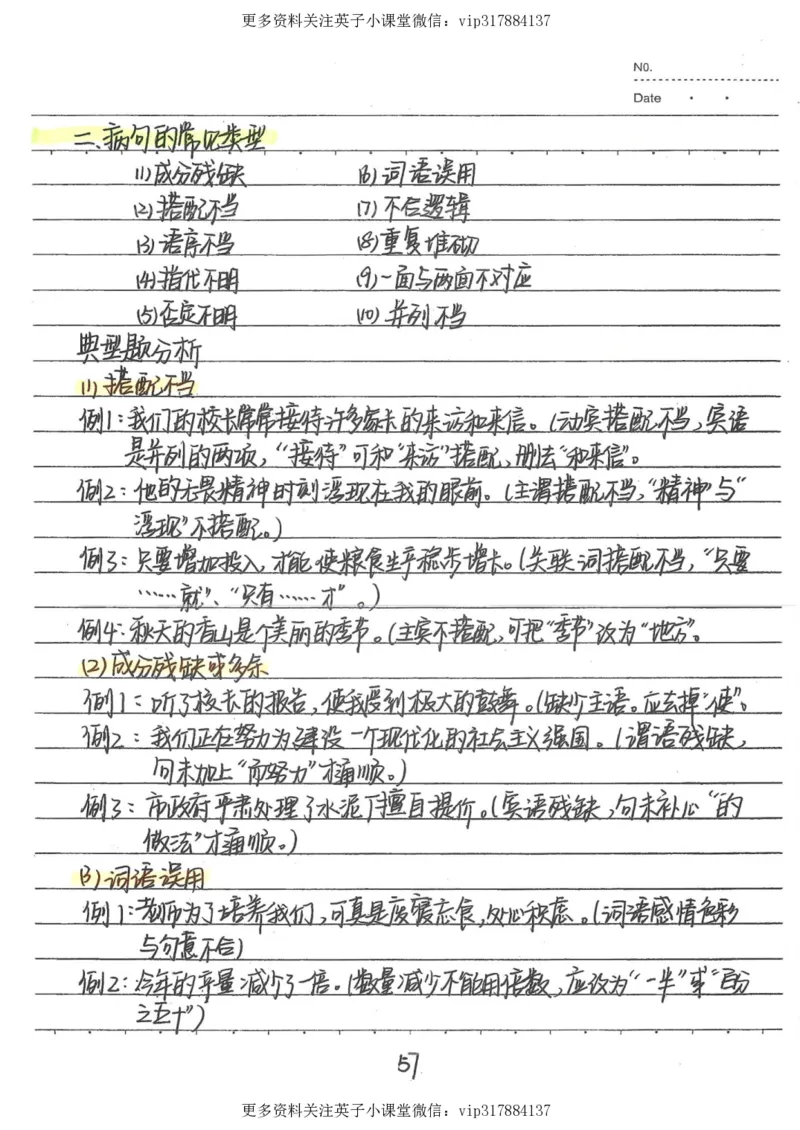 更多资料关注英子小课堂微信：vip317884137
NO.
Date
二、病句的常见类型
(1)成分残缺 (6)词语误用
(2)搭配不当 (7)不合逻辑
(3)语序不当 (8)重复堆砌
(4)指代不明 (9)一面与两面不对应
(5)否定不明 (10)并列不当
典型题分析
(1)搭配不当
例1：我们的校长常常接待许多家长的来访和来信。（动宾搭配不当，宾语
是并列的两项，“接待”可和“来访”搭配，删去“和来信”。
例2：他的无畏精神时刻浮现在我的眼前。（主谓搭配不当，“精神”与“
浮现”不搭配。）
例3：只要增加投入，才能使粮食生产稳步增长。（关联词搭配不当，“只要
……就”、“只有……才”。）
例4：秋天的香山是个美丽的季节。（主宾不搭配，可把“季节”改为“地方”。
(2)成分残缺或多余
例1：听了校长的报告，使我受到极大的鼓舞。（缺少主语。应去掉“使”。
例2：我们正在努力为建设一个现代化的社会主义强国。（谓语残缺，
句末加上“而努力”才通顺。）
例3：市政府严肃处理了水泥厂擅自提价。（宾语残缺，句末补心“的
做法”才通顺。）
(3)词语误用
例1：老师为了培养我们，可真是废寝忘食，处心积虑。（词语感情色彩
与句意不合）
例2：今年的产量减少了一倍。（数量减少不能用倍数，应改为“一半”或“百分
之五十”）
57
更多资料关注英子小课堂微信：vip317884137